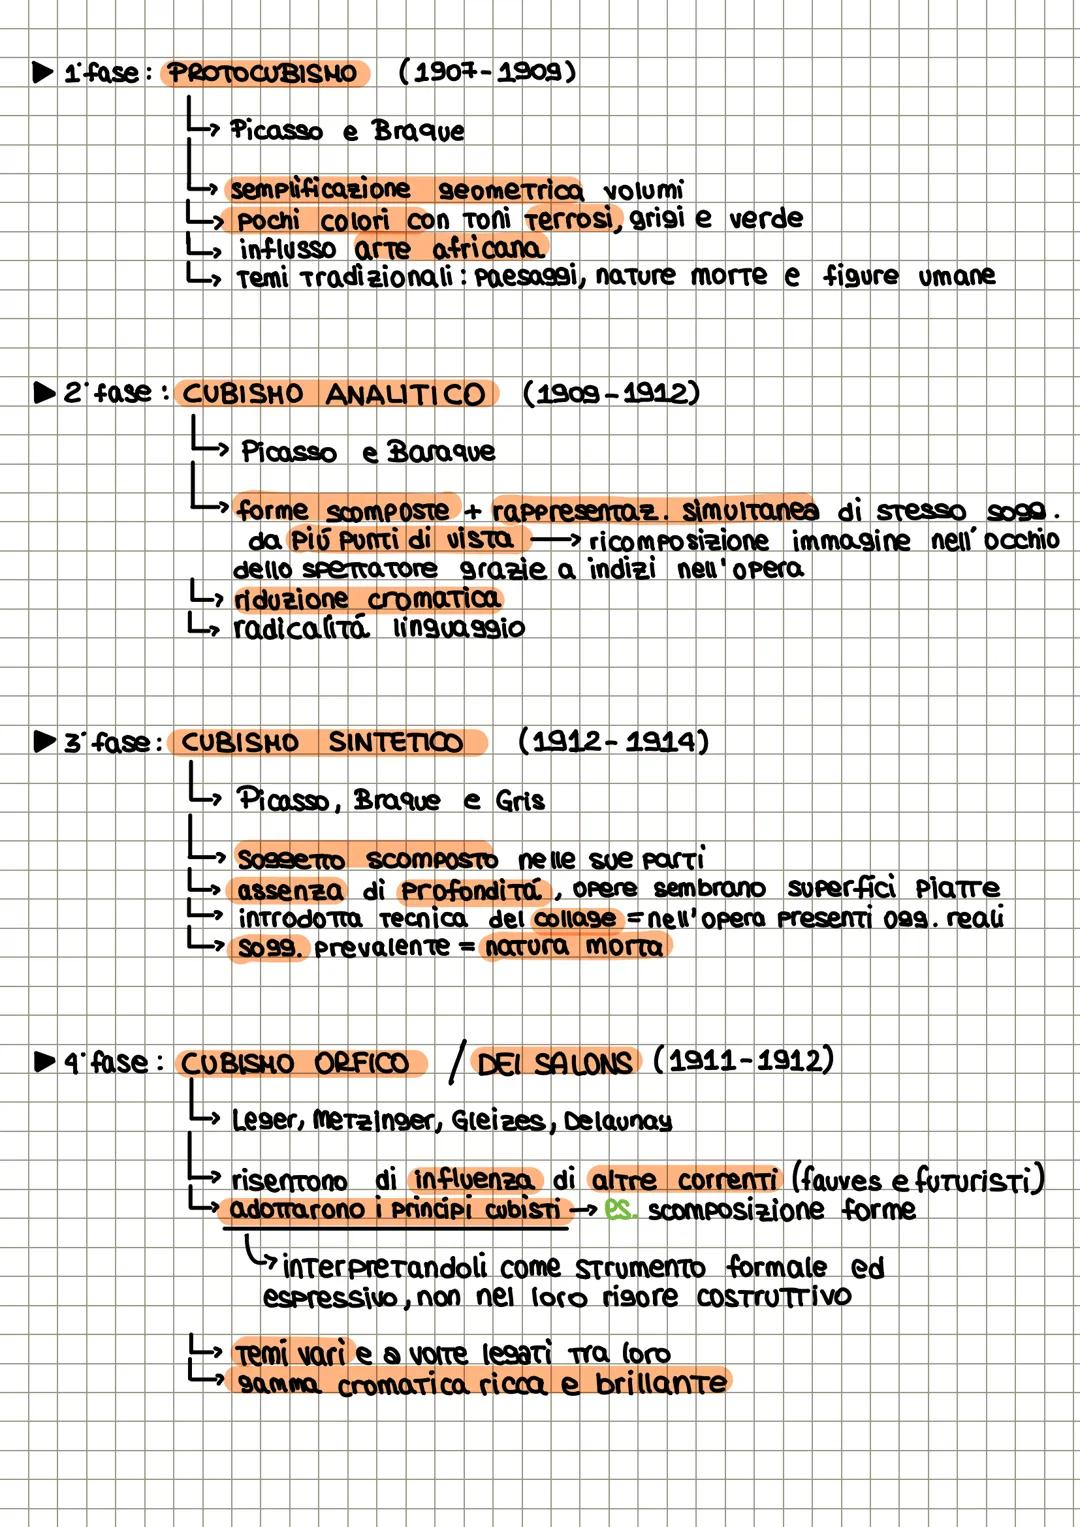 ▶ 1ª fase: PROTOCUBISMO (1907-1909)
↳ Picasso e Braque
↳ semplificazione geometrica volumi
↳ pochi colori con toni terrosi, grigi e verde
↳ influsso arte africana
↳ temi tradizionali: paesaggi, nature morte e figure umane
▶ 2ª fase: CUBISMO ANALITICO (1909-1912)
↳ Picasso e Baraque
↳ forme scomposte + rappresentaz. simultanea di stesso sogg.
da piú punti di vista → ricomposizione immagine nell'occhio
dello spettatore grazie a indizi nell'opera
↳ riduzione cromatica
↳ radicalitá linguaggio
▶ 3ª fase: CUBISMO SINTETICO (1912-1914)
↳ Picasso, Braque e Gris
↳ soggetto scomposto nelle sue parti
↳ assenza di profonditá, opere sembrano superfici piatte
↳ introdotta tecnica del collage = nell'opera presenti ogg. reali
↳ sogg. prevalente = natura morta
▶ 4ª fase: CUBISMO ORFICO / DEI SALONS (1911-1912)
↳ Leger, Metzinger, Gleizes, Delaunay
↳ risentono di influenza di altre correnti (fauves e futuristi)
↳ adottarono i principi cubisti → es. scomposizione forme
↳ interpretandoli come strumento formale ed
espressivo, non nel loro rigore costruttivo
↳ temi vari e a volte legati tra loro
↳ gamma cromatica ricca e brillante